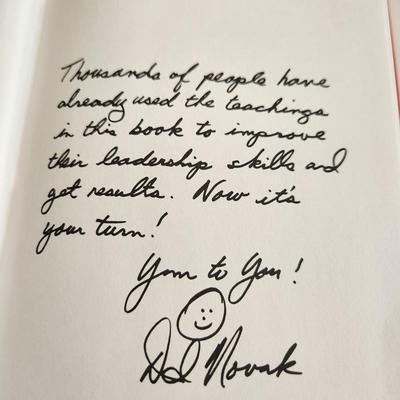 Thousands of people have
already used the teachings
in this book to improve
their leadership skills and
get results. Now it's
your turn!
Yum to You!
David Novak